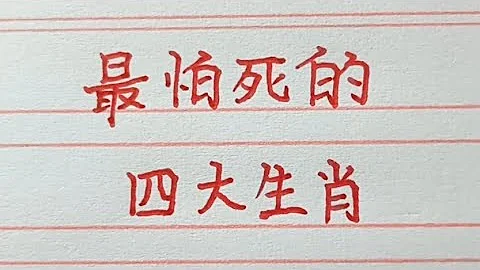 最怕死的
四大生肖